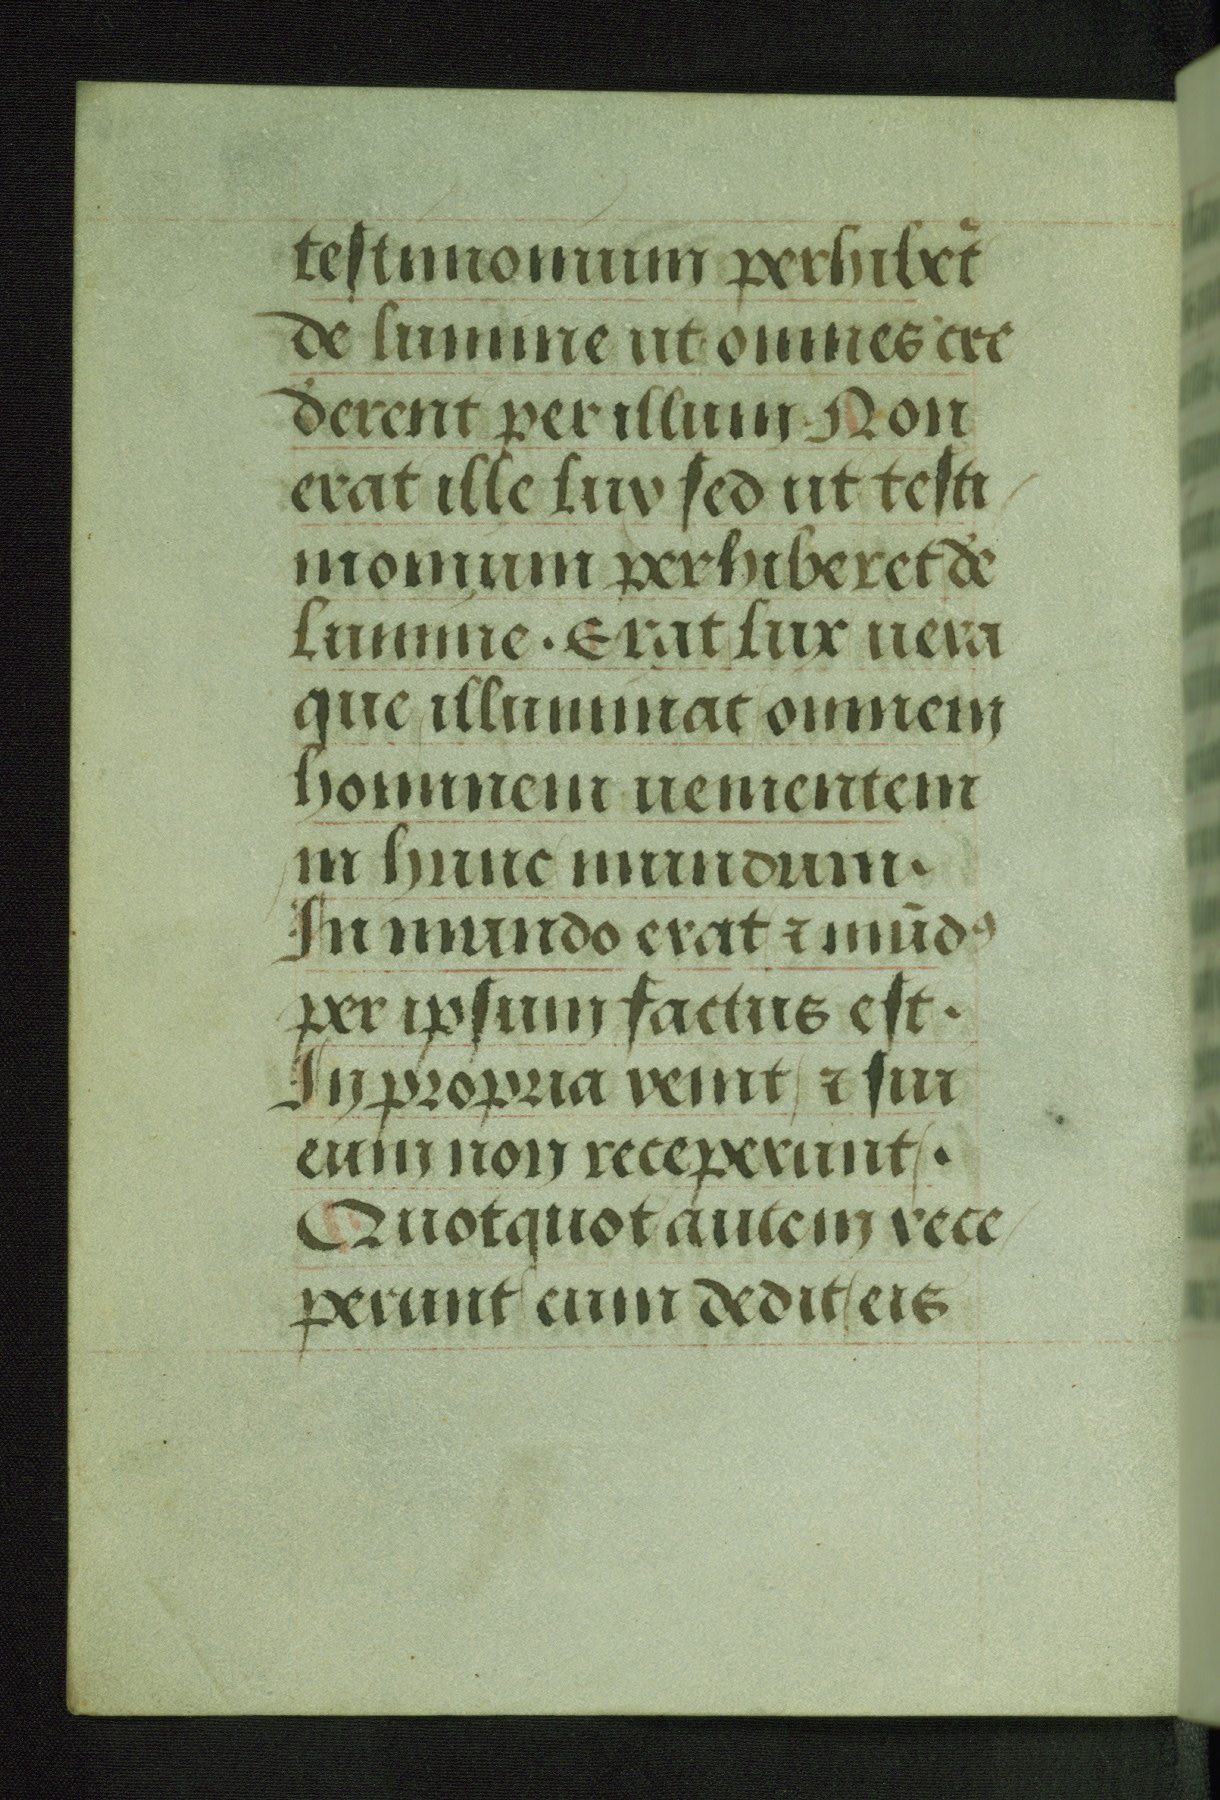 testimonium perhibet᷑
de lumine ut omnes cre
derent per illum. Non
erat ille lux sed ut testi
monium perhiberet de
lumine. Erat lux uera
que illuminat omnem
hominem uenientem
in hunc mundum.
In mundo erat ⁊ mūdꝰ
per ipsum factus est.
In propria venit / ⁊ sui
eum non receperunt.
Quotquot autem rece
perunt eum dedit eis